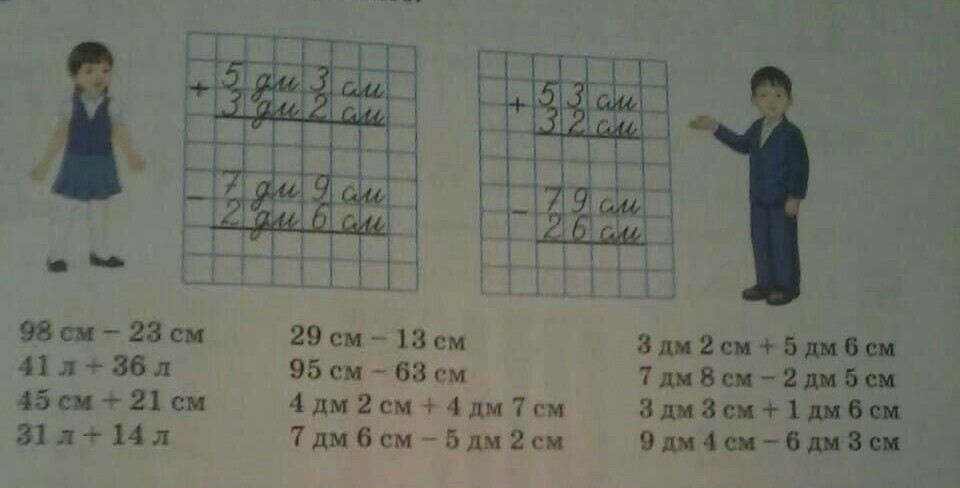 + 5 дм 3 см
3 дм 2 см
− 7 дм 9 см
2 дм 6 см
+ 53 см
32 см
− 79 см
26 см
98 см − 23 см
41 л + 36 л
45 см + 21 см
31 л + 14 л
29 см − 13 см
95 см − 63 см
4 дм 2 см + 4 дм 7 см
7 дм 6 см − 5 дм 2 см
3 дм 2 см + 5 дм 6 см
7 дм 8 см − 2 дм 5 см
3 дм 3 см + 1 дм 6 см
9 дм 4 см − 6 дм 3 см